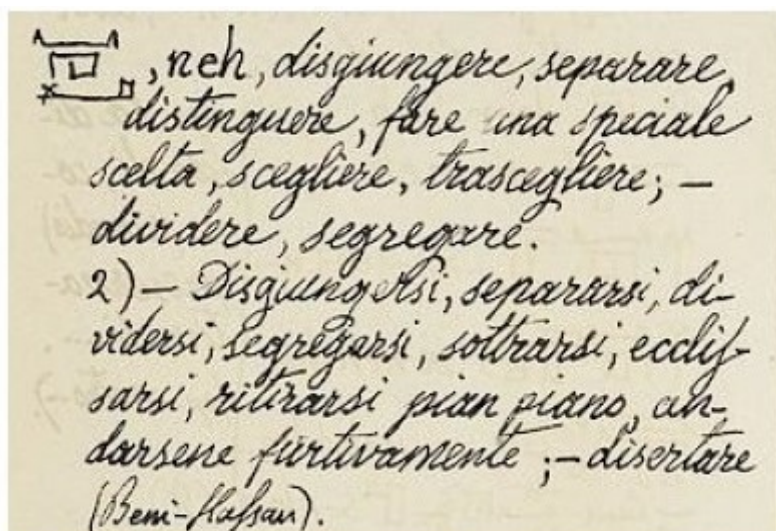 , neh, disgiungere, separare,
distinguere, fare una speciale
scelta, scegliere, trascegliere; —
dividere, segregare.
2) — Disgiungersi, separarsi, di-
vidersi, segregarsi, sottrarsi, ecclis-
sarsi, ritirarsi pian piano, an-
darsene furtivamente; — disertare
(Beni-Hassan).